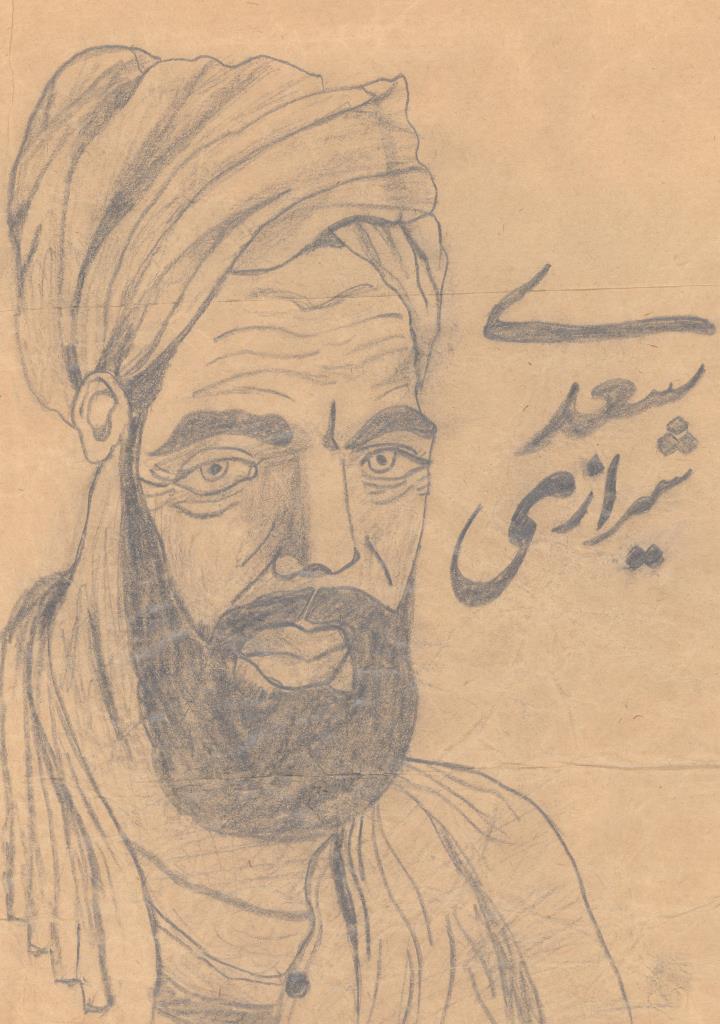 سعدے
شیرازی